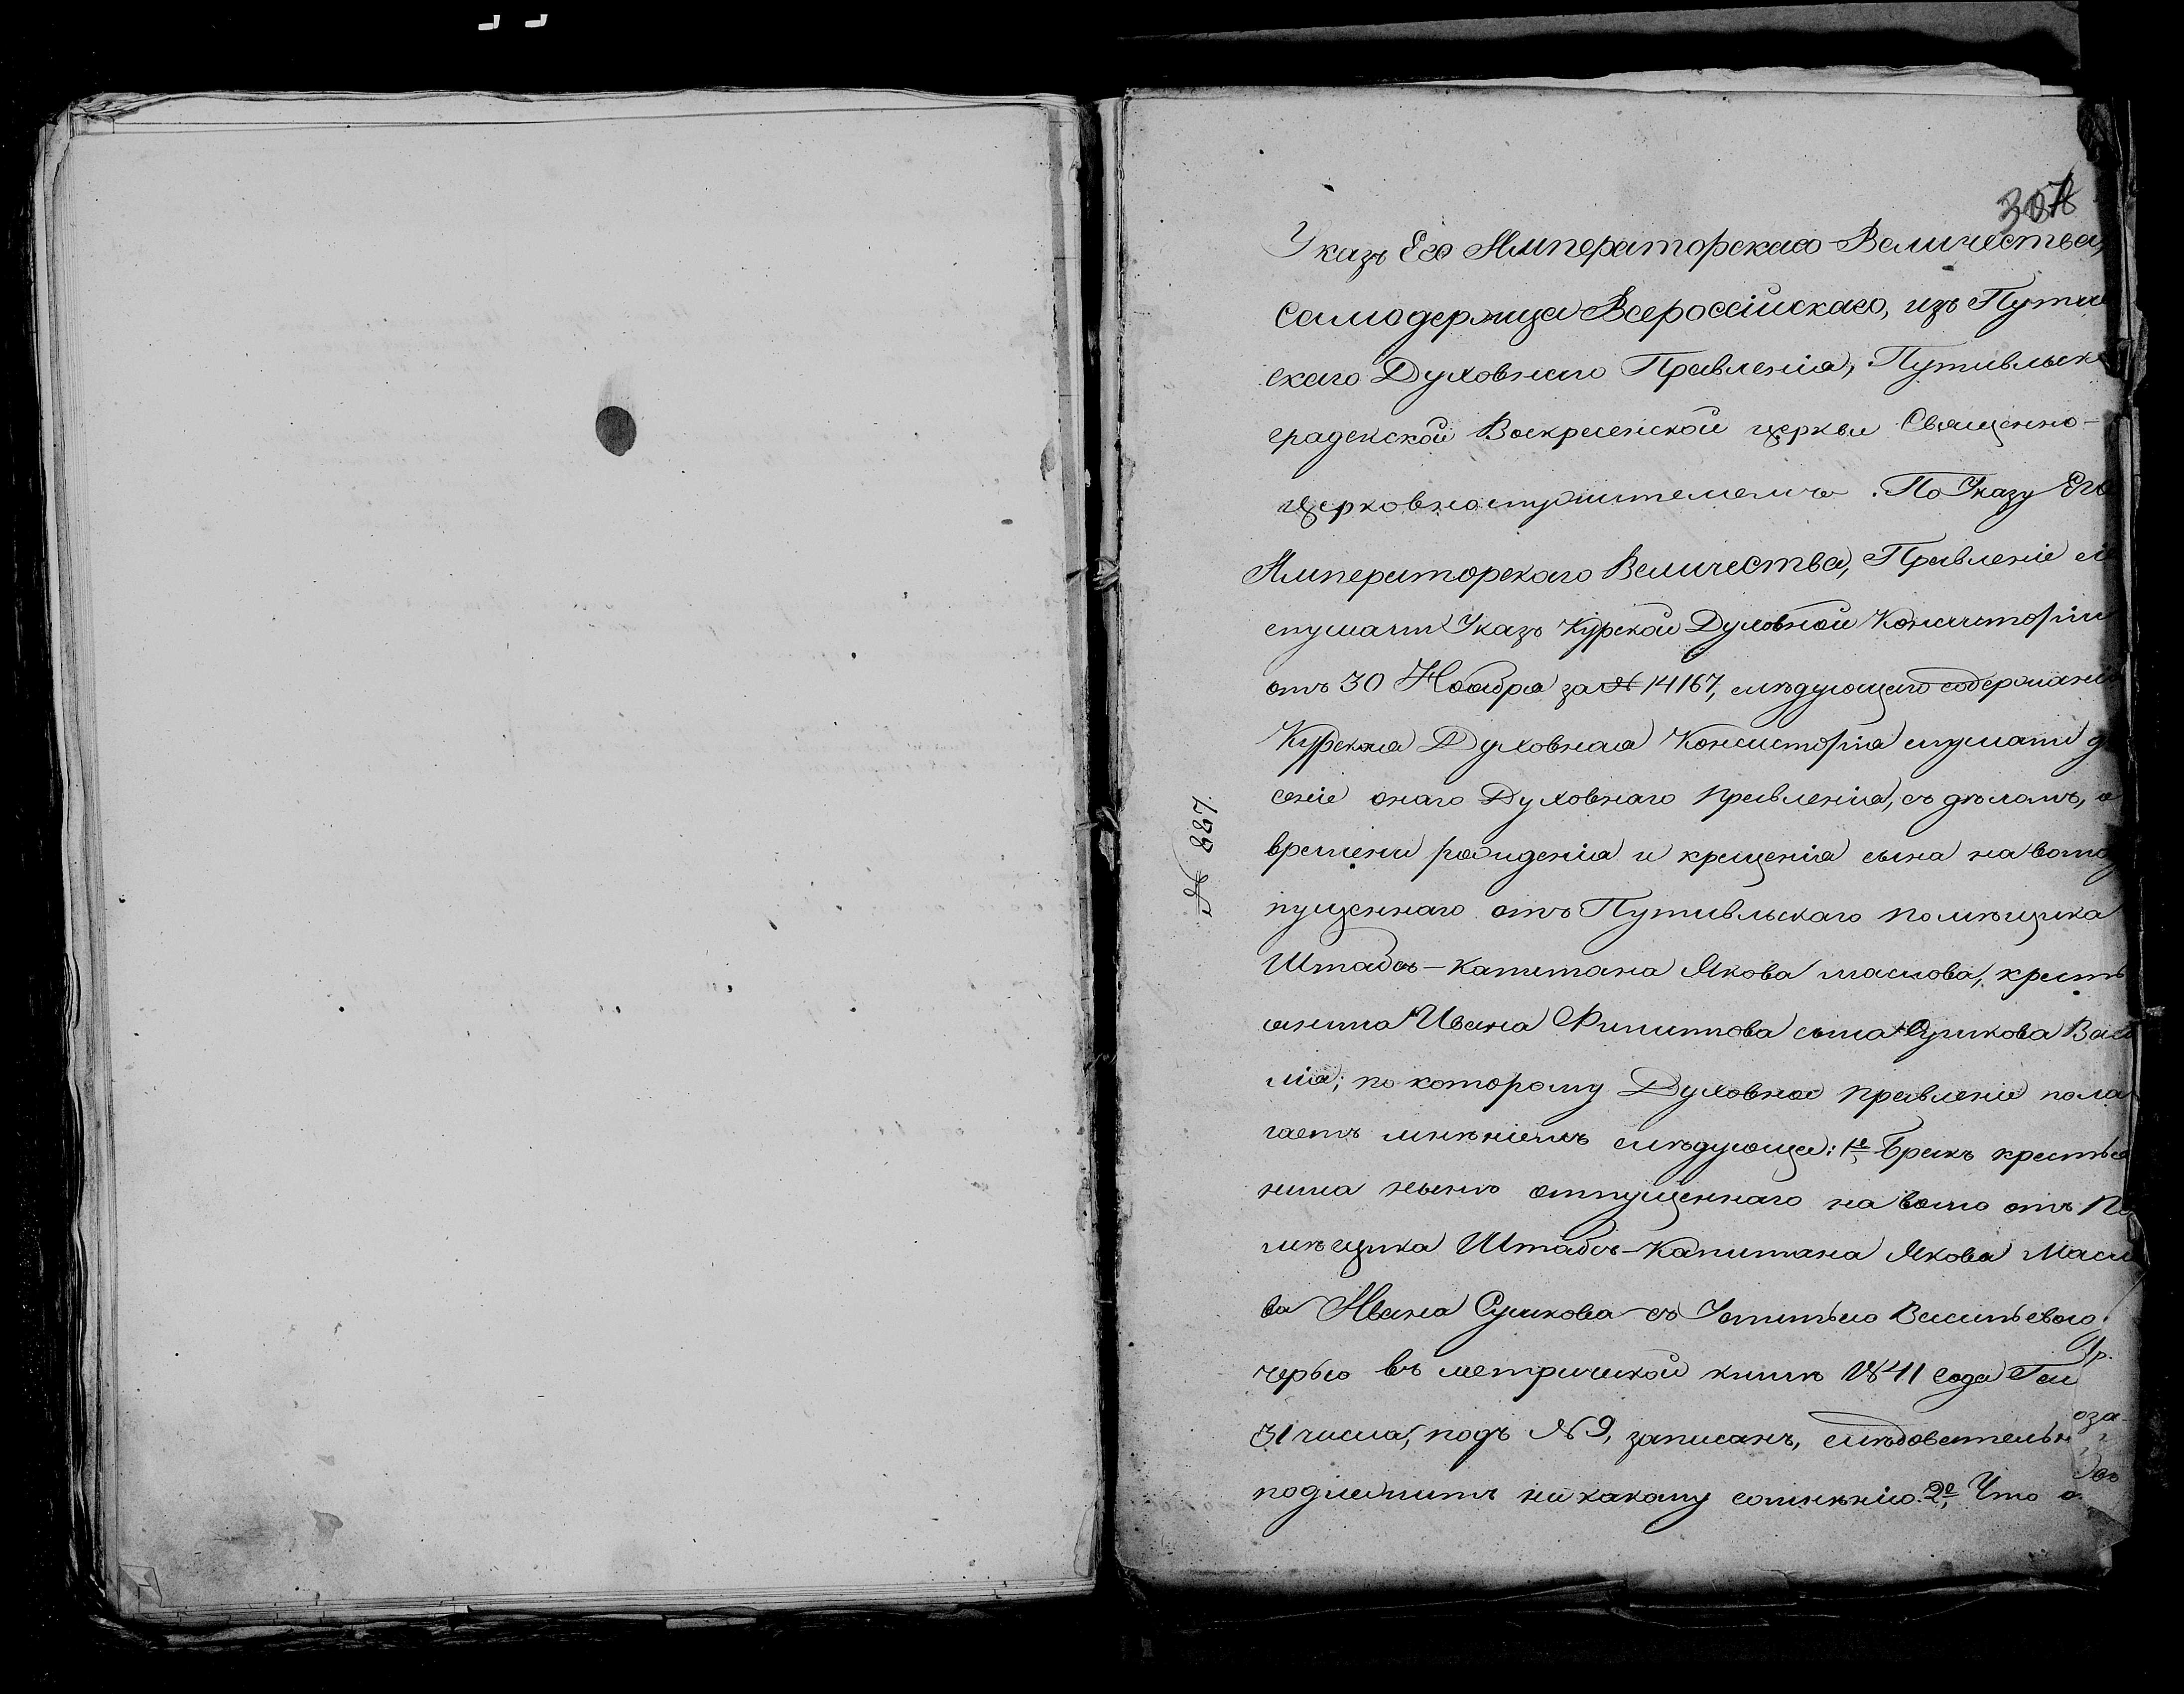 307
Указъ Его Императорскаго Величества,
Самодержца Всероссійскаго, изъ Путив
скаго Духовнаго Правленія, Путивльск
градской Воскресенской церкви Священно-
церковнослужителемъ. По Указу Его
Императорскаго Величества, Правленіе сіе
слушали Указъ Курской Духовной Консисторіи
отъ 30 Ноября за № 14167, слѣдующаго содержанія
Курская Духовная Консисторія слушали до
сеніе онаго Духовнаго Правленія, съ дѣломъ, о
времени рожденія и крещенія сына на волю
пущеннаго отъ Путивльскаго помѣщика
Штабсъ-Капитана Якова Маслова, кресть
янина Ивана Филиппова сына Сушкова Васи
лія; по которому Духовное Правленіе пола
гаетъ мнѣніемъ слѣдующее: 1е, Бракъ крестья
нина нынѣ отпущеннаго на волю отъ По
мѣщика Штабсъ-Капитана Якова Масло
ва Ивана Сушкова съ Устиньею Васильевою
черью въ метрической книгѣ 1841 года Ген
31 числа, подъ № 9, записанъ, слѣдовательн
подлежитъ ни какому сомнѣнію. 2е, Что о
№ 887